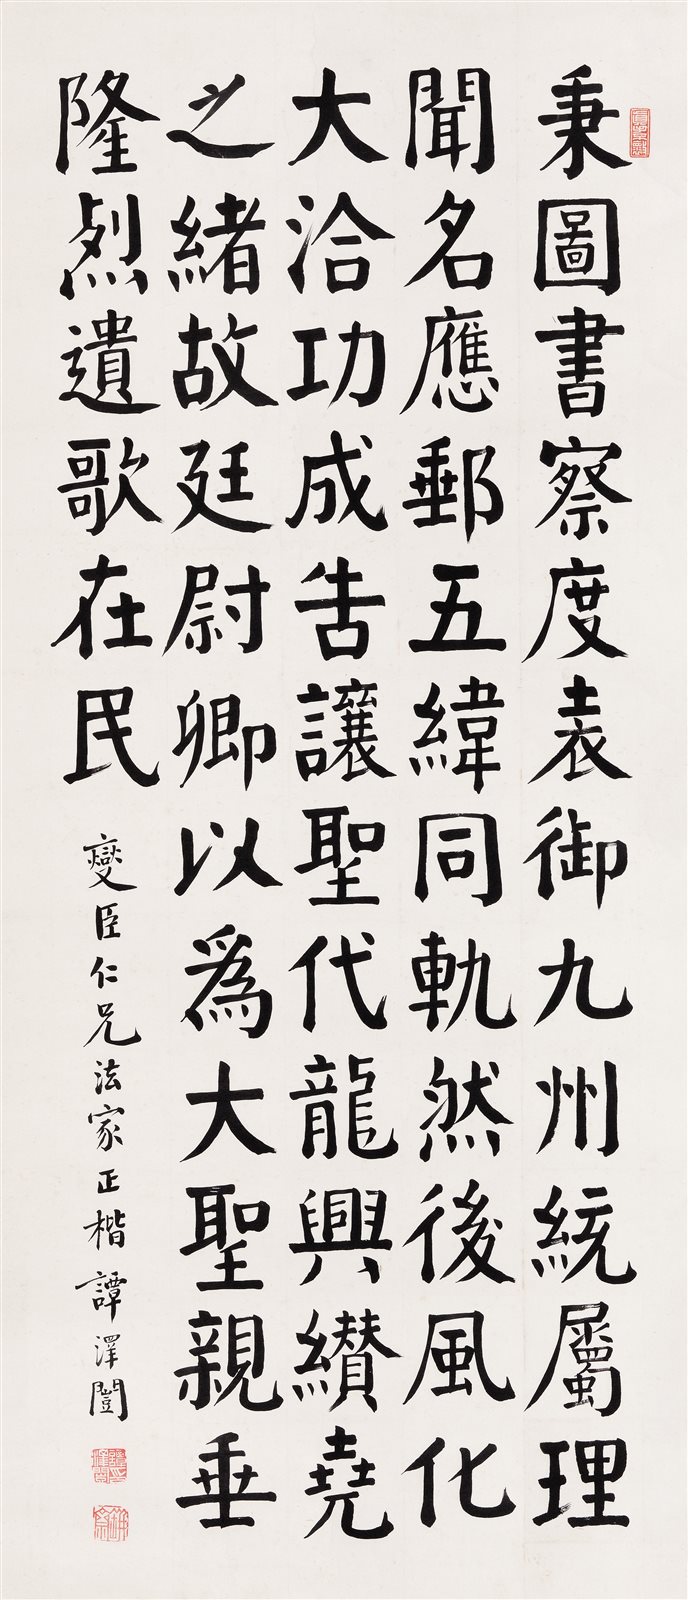 秉圖書察度袁御九州統屬理
聞名應郵五緯同軌然後風化
大洽功成告讓聖代龍興纘堯
之緒故廷尉卿以爲大聖親垂
隆烈遺歌在民
燮臣仁兄法家正楷譚澤闓